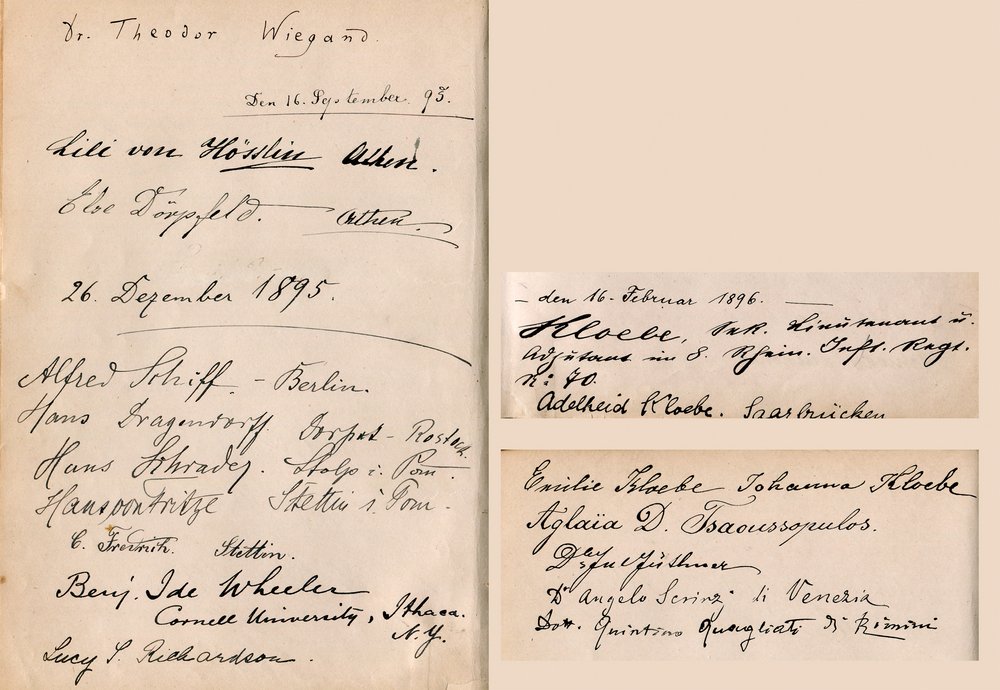 Dr. Theodor Wiegand.
Den 16. September 95.
Lili von Hösslin Athen.
Else Dörpfeld. Athen.
26. Dezember 1895.
Alfred Schiff - Berlin.
Hans Dragendorff Dorpat - Rostock.
Hans Schrader. Stolp i. Pom.
Hans von Fritze Stettin i. Pom.
C. Fredrich. Stettin.
Benj. Ide Wheeler
Cornell University, Ithaca.
N.Y.
Lucy S. Richardson.
- den 16. Februar 1896. -
Kloebe, Sek. Lieutenant u.
Adjutant im 8. Rhein. Inft. Regt.
N: 70.
Adelheid Kloebe. Saarbrücken
Emilie Kloebe Johanna Kloebe
Aglaïa D. Tsaoussopulos.
Dr Jul Jüthner
Dr Angelo Scrinzi di Venezia
Dott. Quintino Quagliati di Rimini